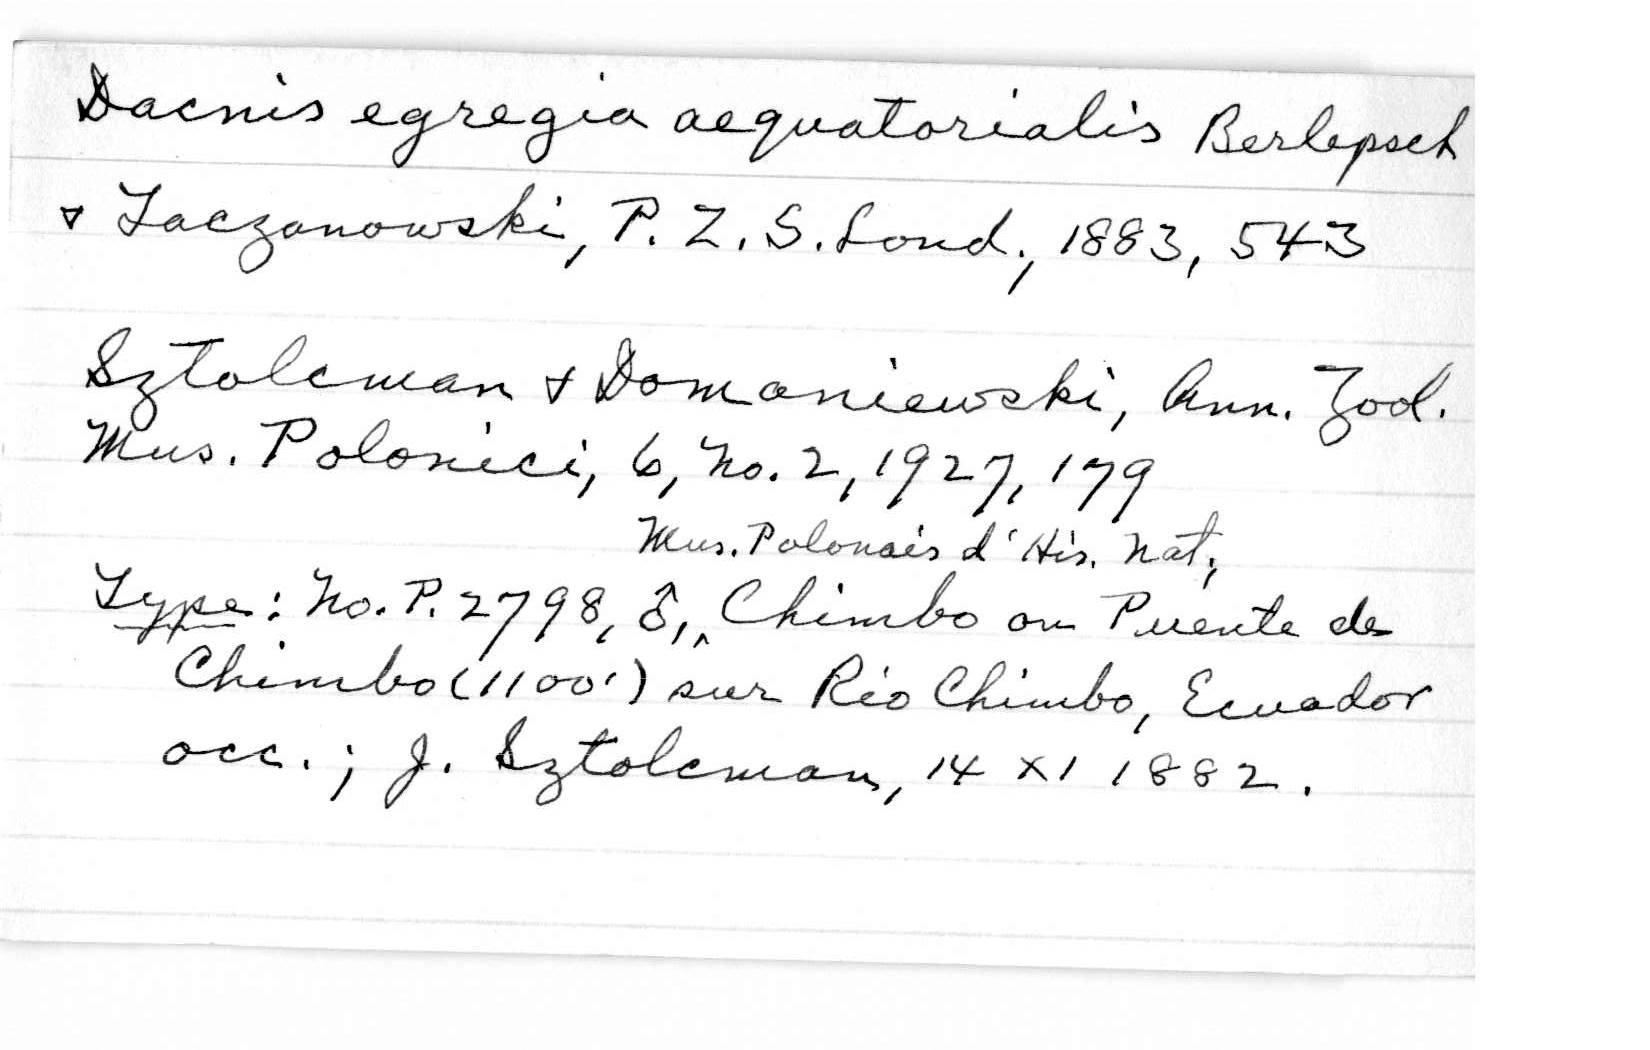 Dacnis egregia aequatorialis Berlepsch
& Taczanowski, P. Z. S. Lond., 1883, 543
Sztolcman & Domaniewski, Ann. Zool.
Mus. Polonici, 6, No. 2, 1927, 179
Mus. Polonais d'His. Nat.,
Type: No. P. 2798, ♂, ^ Chimbo ou Puente de
Chimbo (1100') sur Rio Chimbo, Ecuador
occ.; J. Sztolcman, 14 XI 1882.